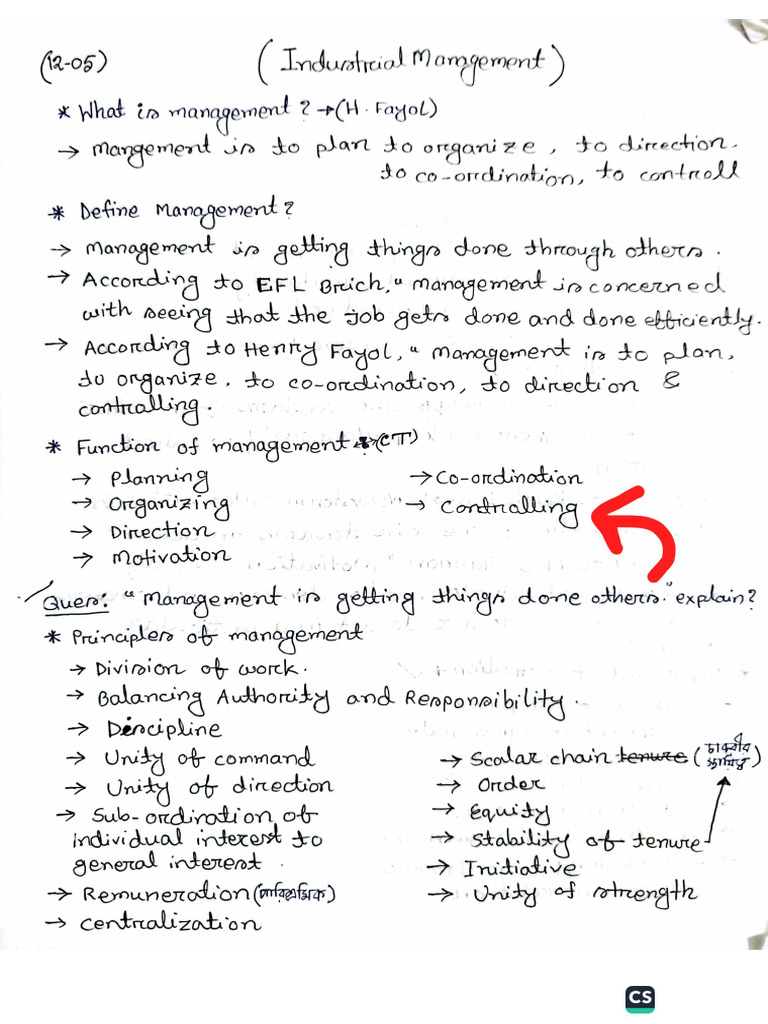 (12-05) (Industrial Management)
* What is management? → (H. Fayol)
→ mangement is to plan to organize, to direction.
to co-ordination, to controll
* Define Management?
→ Management is getting things done through others.
→ According to EFL Brich, "management is concerned
with seeing that the job gets done and done efficiently.
→ According to Henry Fayol, " management is to plan,
to organize, to co-ordination, to direction &
contralling.
* Function of management → (CT)
→ Planning → Co-ordination
→ Organizing → Contralling
→ Direction
→ Motivation
Ques: "Management is getting things done others." explain?
* Principles of management
→ Division of work.
→ Balancing Authority and Responsibility.
→ Discipline
→ Unity of command → Scalar chain tenure (চাকরীর
→ Unity of direction স্থায়িত্ব)
→ Sub-ordination of → Order
individual interest to → Equity
general interest. → Stability of tenure
→ Remuneration (পারিশ্রমিক) → Initiative
→ Centralization → Unity of strength
CS